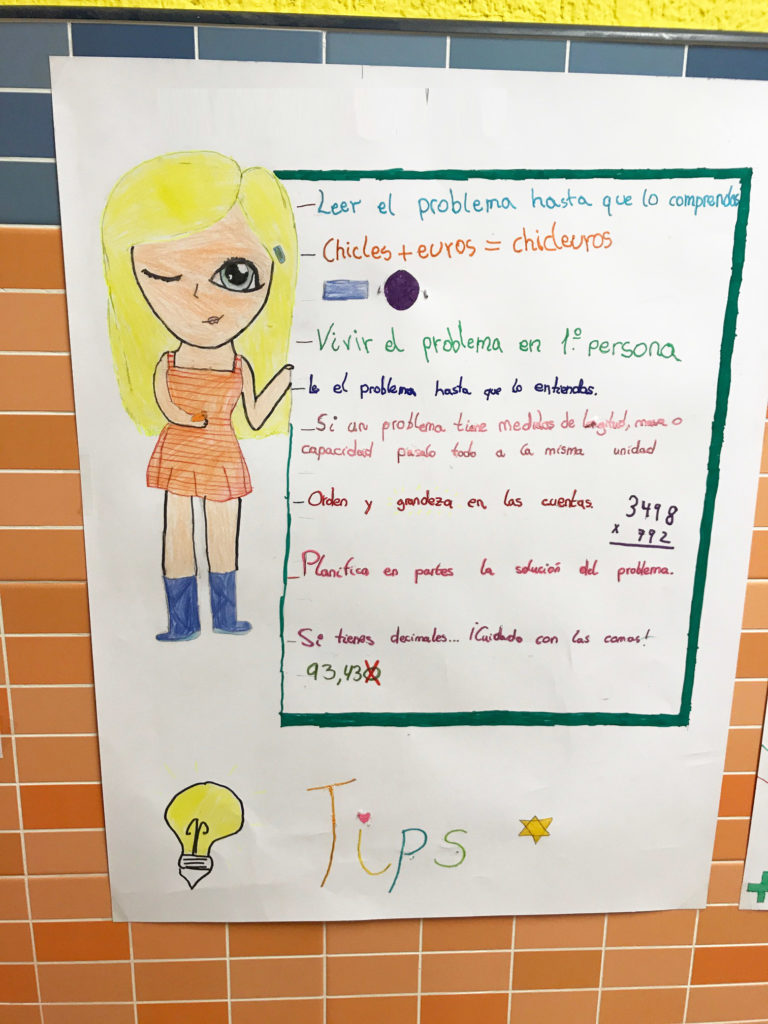 - Leer el problema hasta que lo comprendas
- Chicles + euros = chicleuros
- Vivir el problema en 1ª persona
- lee el problema hasta que lo entiendas.
- Si un problema tiene medidas de longitud, masa o
capacidad pasalo todo a la misma unidad
- Orden y grandeza en las cuentas.
3498
x 792
- Planifica en partes la solución del problema.
- Si tienes decimales... ¡Cuidado con las comas!
93,430
Tips